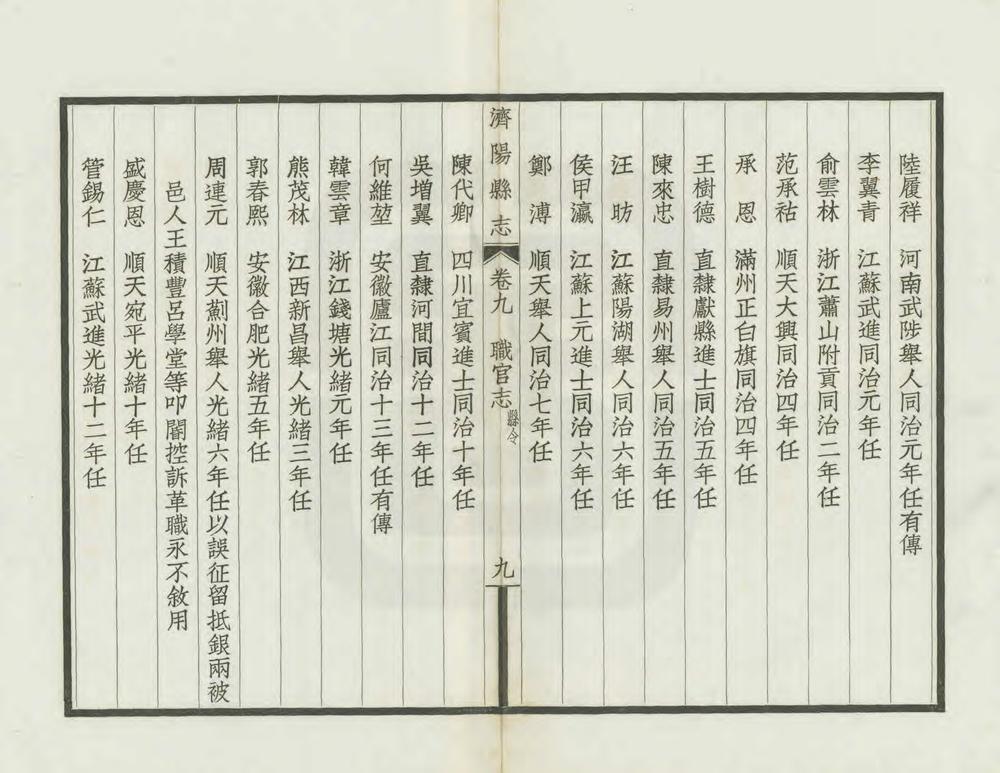 陸履祥 河南武陟舉人同治元年任有傳
李翼青 江蘇武進同治元年任
俞雲林 浙江蕭山附貢同治二年任
范承祜 順天大興同治四年任
承 恩 滿州正白旗同治四年任
王樹德 直隸獻縣進士同治五年任
陳來忠 直隸易州舉人同治五年任
汪 昉 江蘇陽湖舉人同治六年任
侯甲瀛 江蘇上元進士同治六年任
鄭 溥 順天舉人同治七年任
濟陽縣志 卷九 職官志 縣令 九
陳代卿 四川宜賓進士同治十年任
吳增翼 直隸河間同治十二年任
何維堃 安徽廬江同治十三年任有傳
韓雲章 浙江錢塘光緒元年任
熊茂林 江西新昌舉人光緒三年任
郭春熙 安徽合肥光緒五年任
周連元 順天薊州舉人光緒六年任以誤征留抵銀兩被
邑人王積豐呂學堂等叩閽控訴革職永不敘用
盛慶恩 順天宛平光緒十年任
管錫仁 江蘇武進光緒十二年任